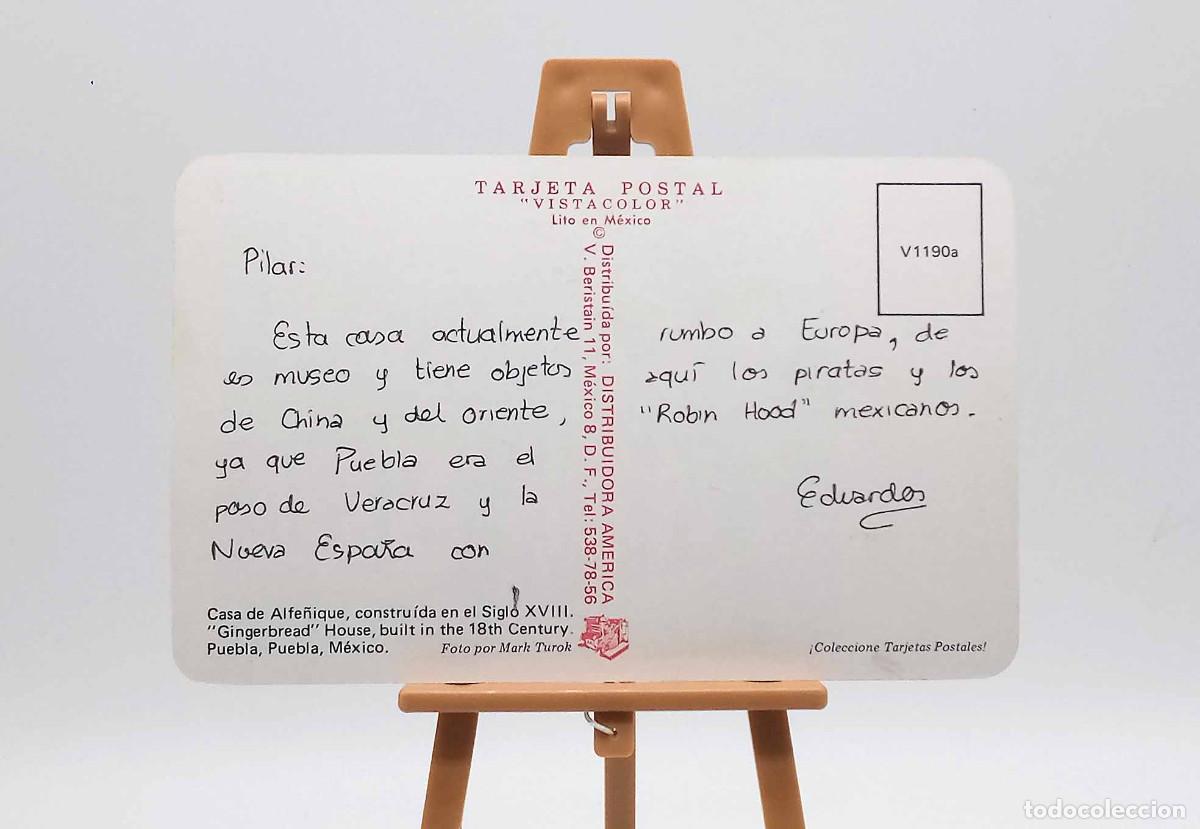 TARJETA POSTAL
"VISTACOLOR"
Lito en México
©
Distribuída por: DISTRIBUIDORA AMERICA
V. Beristain 11, México 8, D. F., Tel: 538-78-56
V1190a
Pilar:
Esta casa actualmente
es museo y tiene objetos
de China y del oriente,
ya que Puebla era el
paso de Veracruz y la
Nueva España con
rumbo a Europa, de
aquí los piratas y los
"Robin Hood" mexicanos.
Eduardo
Casa de Alfeñique, construída en el Siglo XVIII.
"Gingerbread" House, built in the 18th Century.
Puebla, Puebla, México.
Foto por Mark Turok
¡Coleccione Tarjetas Postales!
todocoleccion